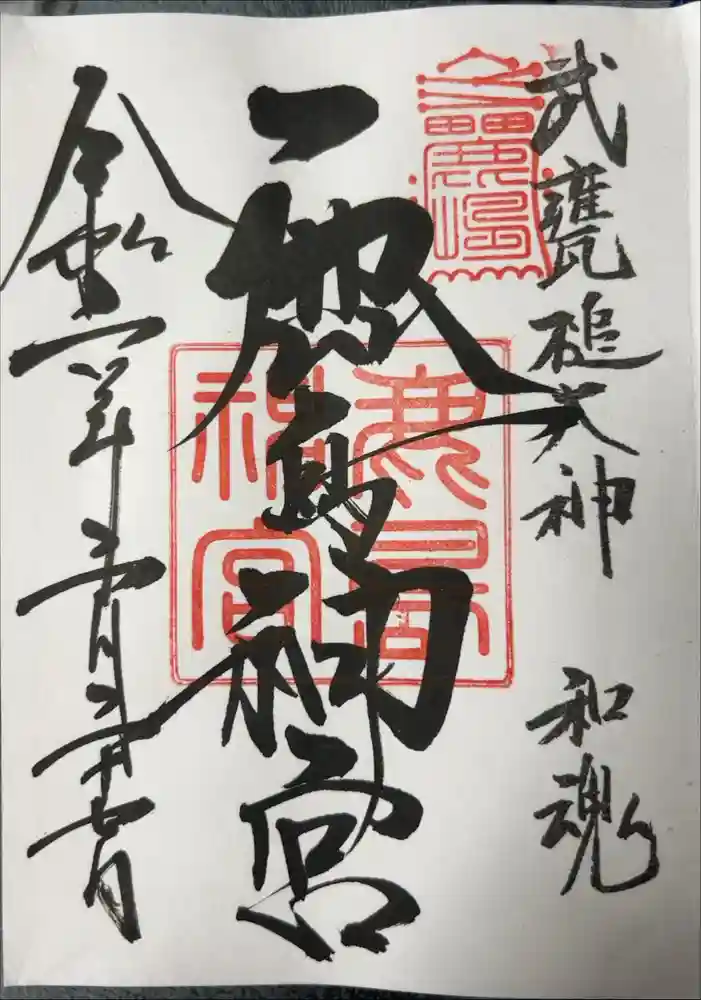 武甕槌大神 和魂
鹿島神宮
鹿島
神宮
令和
年
月二十七日